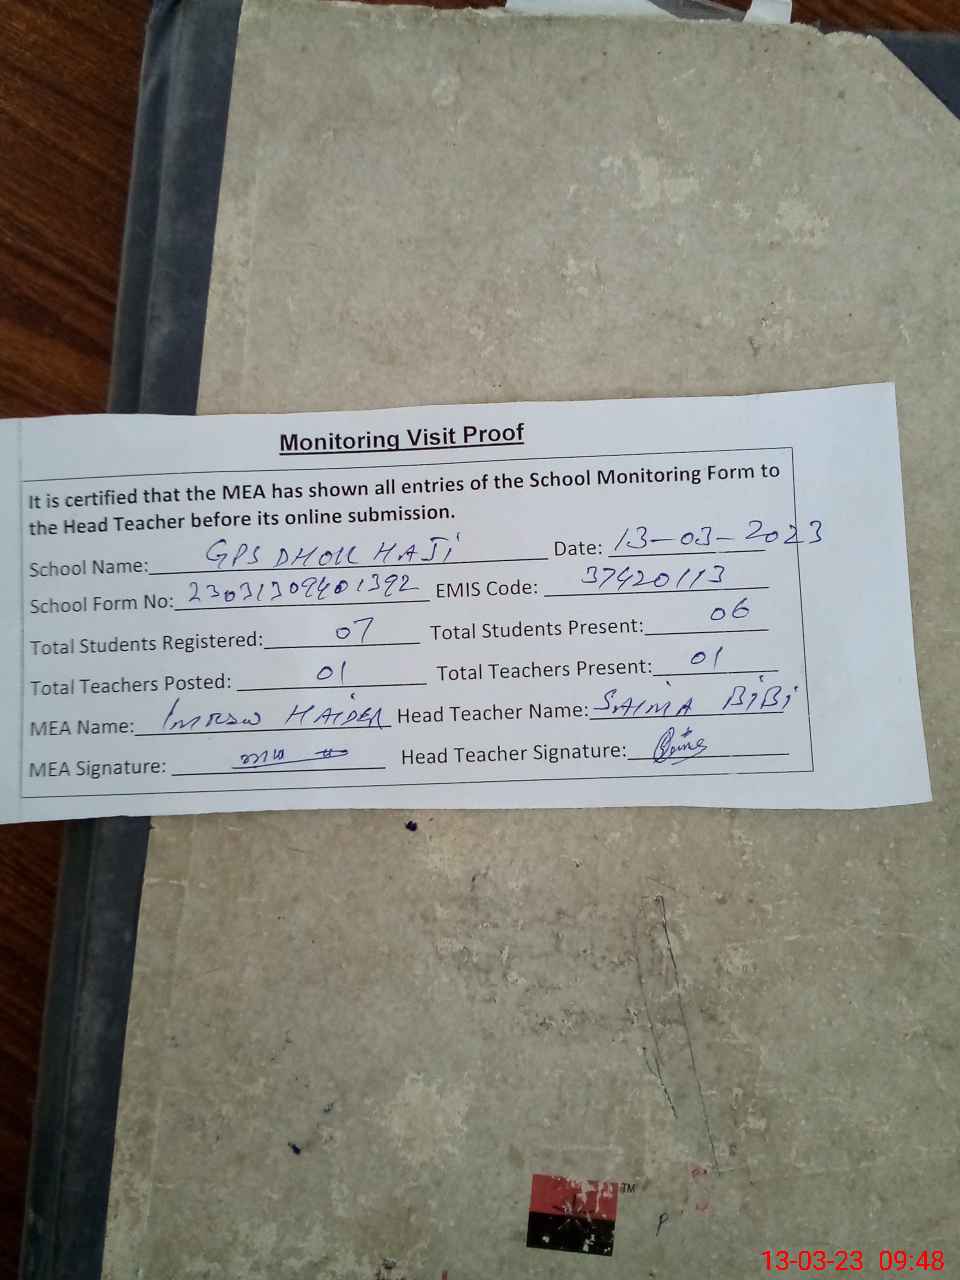 Monitoring Visit Proof
It is certified that the MEA has shown all entries of the School Monitoring Form to
the Head Teacher before its online submission.
School Name: GPS DHOK HAJi Date: 13-03-2023
School Form No: 23031309401392 EMIS Code: 37420113
Total Students Registered: 07 Total Students Present: 06
Total Teachers Posted: 01 Total Teachers Present: 01
MEA Name: IMRAN HAiDER Head Teacher Name: SAiMA BiBi
MEA Signature: Head Teacher Signature:
TM
P
13-03-23 09:48